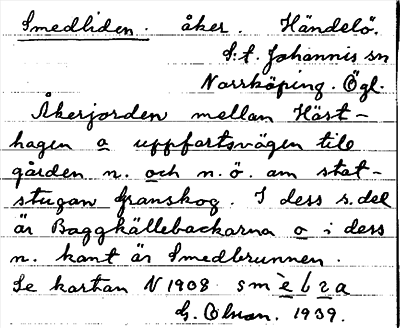 Smedliden. åker. Händelö.
S:t. Johannis sn
Norrköping. Ögl.
Åkerjorden mellan Häst-
hagen o uppfartsvägen till
gården n. och n.ö. om stat-
stugan Granskog. I dess s. del
är Baggkällebackarna o i dess
n. kant är Smedbrunnen.
Se kartan N 1908 
G. Olson. 1939.